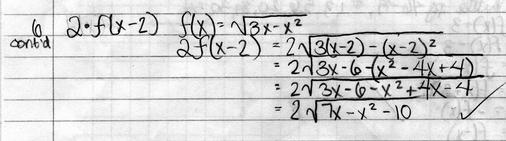 6 2·f(x-2) f(x) = √3x-x²
cont'd 2f(x-2) = 2√3(x-2) - (x-2)²
= 2√3x-6-(x²-4x+4)
= 2√3x-6-x²+4x-4
= 2√7x-x²-10 ✓